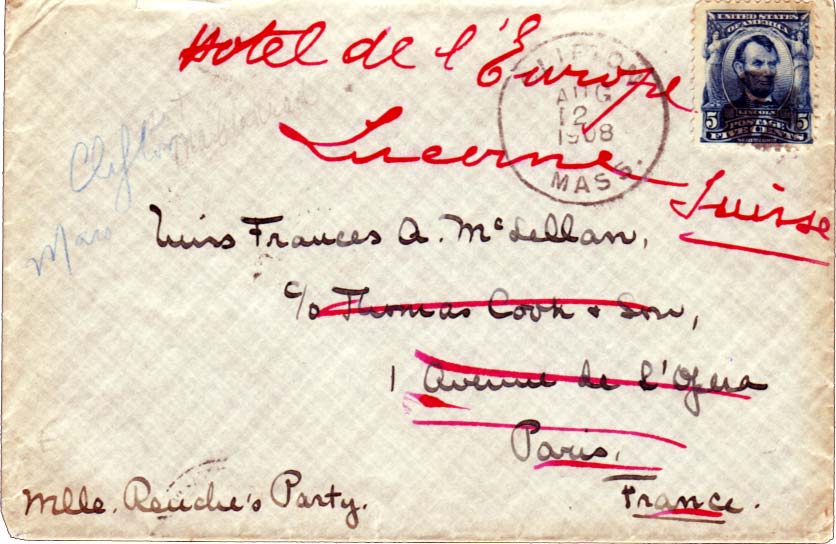 Hotel de l'Europe
Lucerne
Suisse
UNITED STATES
OF AMERICA
5 LINCOLN 5
POSTAGE
FIVE CENTS
CLIFTON
AUG
12
1908
MASS.
Clifton
Mass
Miss Frances A. McLellan,
c/o Thomas Cook & Son,
1 Avenue de l'Opera
Paris,
France.
Mlle. Reuche's Party.